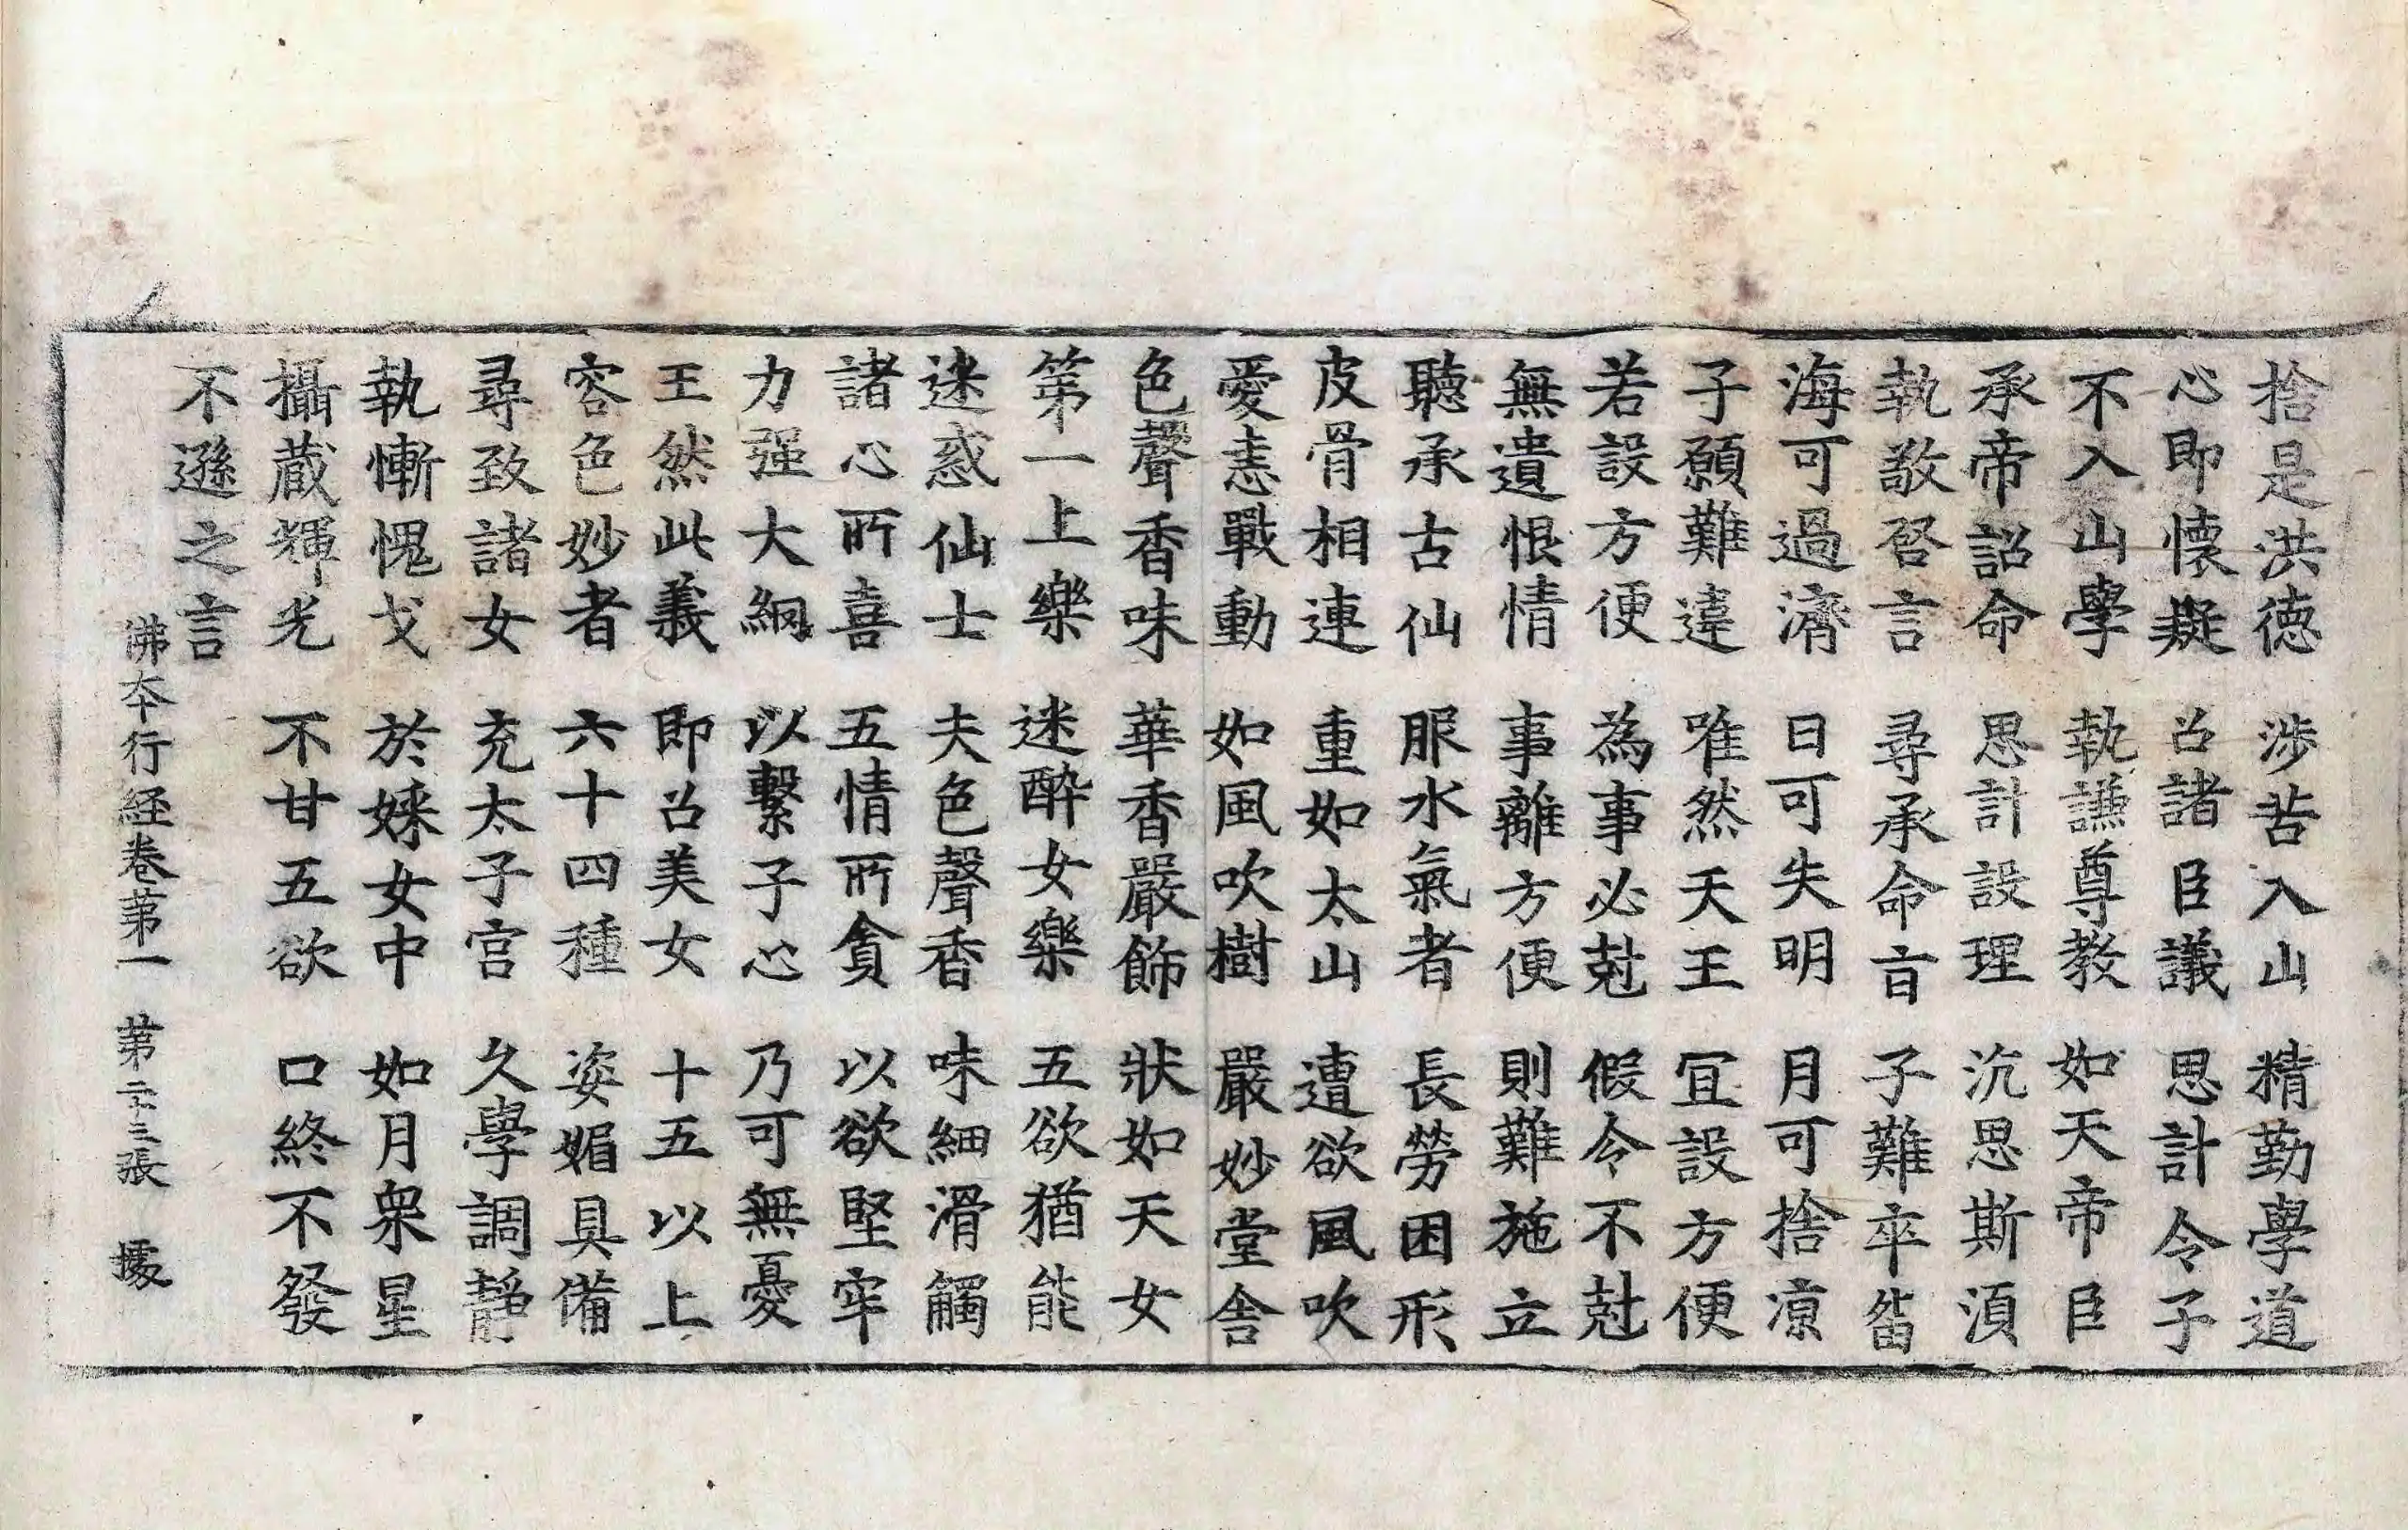 捨是洪德 涉苦入山 精勤學道
心即懷疑 召諸臣議 思計令子
不入山學 執謙尊教 如天帝臣
承帝詔命 思計設理 沉思斯湏
執敬啓言 尋承命盲 子難卒畄
海可過濟 日可失明 月可捨凉
子願難違 唯然天王 冝設方便
若設方便 為事必尅 假令不尅
無遺恨情 事離方便 則難施立
聽承古仙 服水氣者 長勞困形
皮骨相連 重如太山 遭欲風吹
愛恚戰動 如風吹樹 嚴妙堂舎
色聲香味 華香嚴飾 狀如天女
第一上樂 迷醉女樂 五欲猶能
迷惑仙士 夫色聲香 味細滑觸
諸心所喜 五情所貪 以欲堅牢
力强大網 以繫子心 乃可無憂
王然此義 即召美女 十五以上
容色妙者 六十四種 姿媚具備
尋致諸女 充太子宮 久學調靜
執慚愧戈 於婇女中 如月衆星
攝蔵輝光 不甘五欲 口終不發
不遜之言
佛本行経卷苐一 苐二十三張 㩀